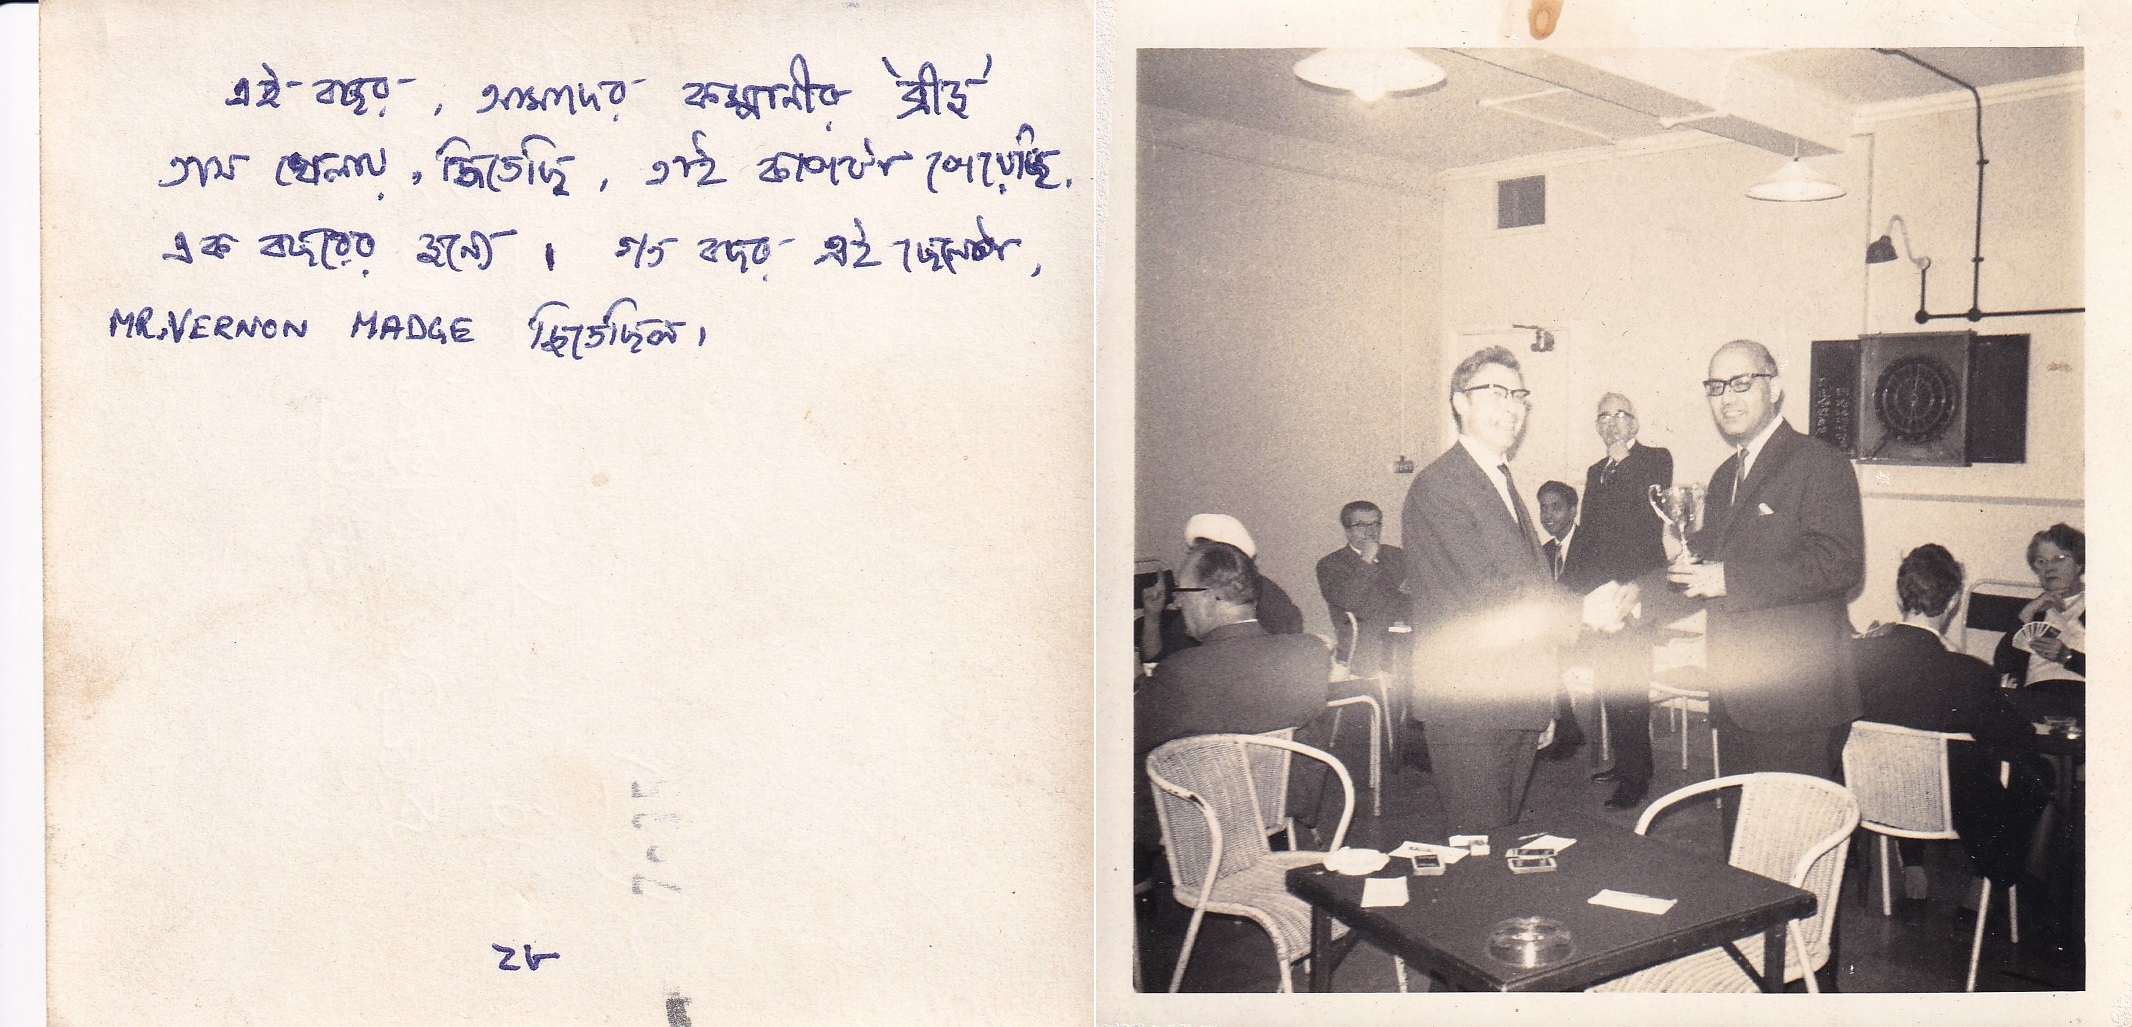 এই বছর, আমাদের কম্পানীর ব্রীজ
তাস খেলায়, জিতেছি, তাই কাপটা পেয়েছি,
এক বছরের জন্যে । গত বছর এই
MR. VERNON MADGE জিতেছিল।
২৮